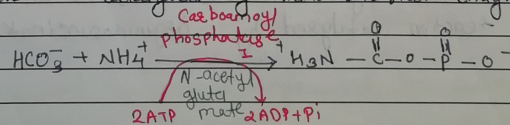 Carbamoyl
phosphatase
I
HCO₃⁻ + NH₄⁺ ⁺H₃N - C - O - P - O⁻
O O
N-acetyl
gluta
mate
2ATP 2ADP+Pi